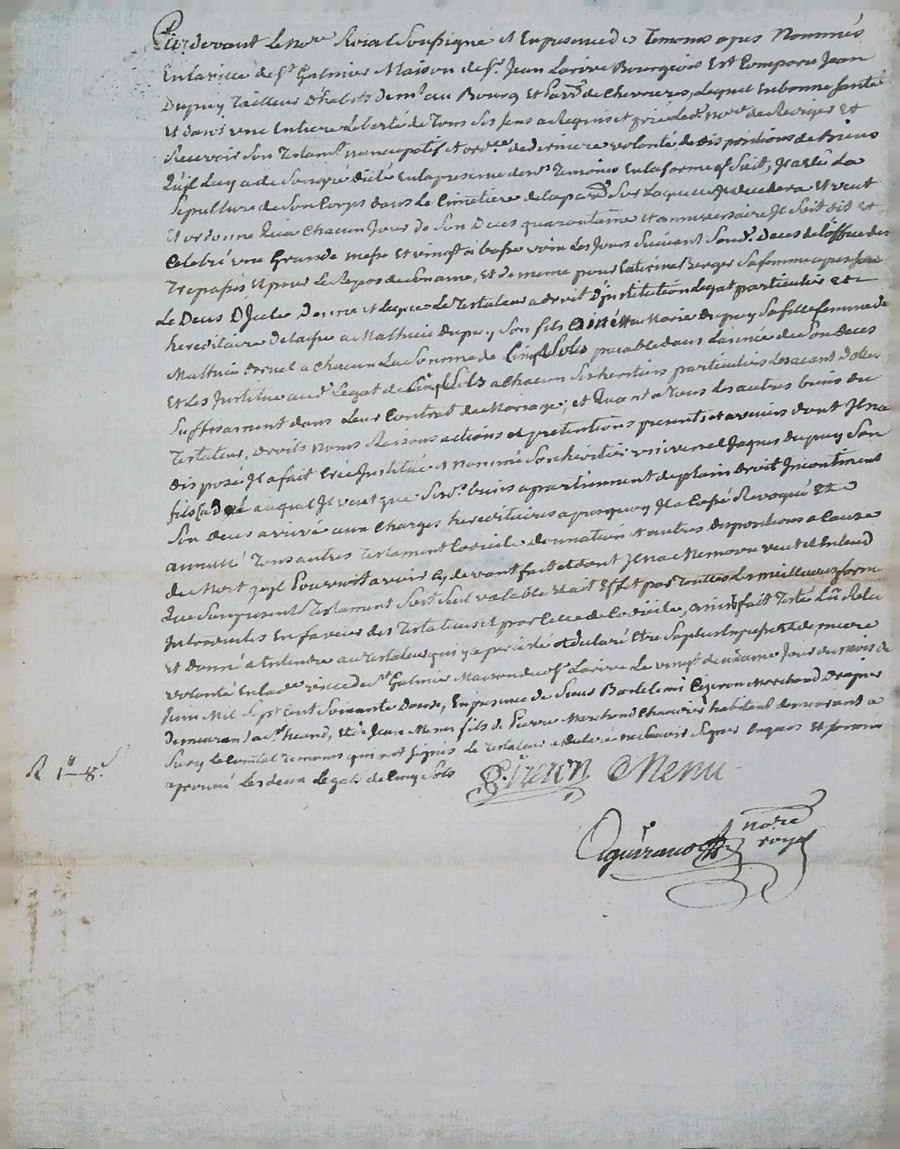 Par devant le no.re Royal Soussigné et En presence des Temoins apres Nommés
En la ville de St Galmier Maison de Sr Jean Larive Bourgeois Est Comparu Jean
Dupuy Tailleur D'habits dem.t au Bourg Et parr.e de Chevrieres, Lequel En bonne santé
Et dans une Entiere Liberté de Tous Ses Sens a Requis et prié led.t no.re de Rediger et
Recevoir Son Testam.t nuncupatif et ord.ce de derniere volonté et disposition de Biens
Qu'il Luy a de Son gré dicté En la presence des.ts Temoins En la forme q.l Suit, Il a Elu La
Sepulture de Son Corps dans Le Cimetiere de la par.e Sur Laquelle Il decedera Et veut
Et ordonne Qu'a Chacun Jour de Son Deces quarantaine et anniversaire Il Soit dit et
Celebré une Grande messe Et vingt a basse voix Les Jours Suivant Sond. deces de L'office des
Trepassés Et pour Le Repos de Son ame, et de meme pour Caterine Berger Sa femme apres
Le Deces D'Icelle Donne et Legue Le Testateur a droit D'institution Legat particulier et
hereditaire De laisse a Mathieu Dupuy Son fils Marie Dupuy Sa fille femme de
Mathieu a chacun La Somme de Cinq Sols payable dans L'année de Son Deces
Et Les Institue aud. Legat de Cinq Sols a Chacun Ses heritiers particuliers Les ayant doter
Suffisament dans Leur Contrat de Mariage; et Quant a Tous Les autres biens du
Testateur, droits noms Raisons actions et pretentions presents et avenirs dont Il n'a
disposé Il a fait Crée Institué et nommé Son heritier universel Jaques Dupuy Son
fils auquel Il veut que Sesd. biens apartiennent de plain droit Incontinent
Son deces arrivé aux Charges hereditaires a Il a Cassé Revoqué Et
annullé Tous autres Testament Codicile donnation et autres dispositions a Cause
de Mort qu'il Pourroit avoir Cy devant fait et dont Il n'a Memoire veut et Entend
Que Son present Testament Soit Seul valable Et ait Effet par Toutes Les meilleures forme
Introduites En faveur des Testateurs et par Celle de Codicile, ainsi fait Testé Lû Relu
Et donné a Entendre au Testateur qui y a persisté et declaré Etre Sa plus Expresse derniere
volonté En lad. ville de St Galmier Maison dud. Sr Larive Le vingt deuxieme Jour du mois de
Juin Mil Sept Cent Soixante Douze, En presence de Sieur Bartelemi Peyron Marchand Drapier
demeurant a St heand, Et de Jean Menu fils de Pierre Marchand habitant demeurant a
Sury Le Comtal temoins qui ont Signés Le Testateur a declaré ne Scavoir Signer Et
aprouvé Les deux Legats de Cinq Sols
R 1" 8.s
Peyron Menu
no.re
royal